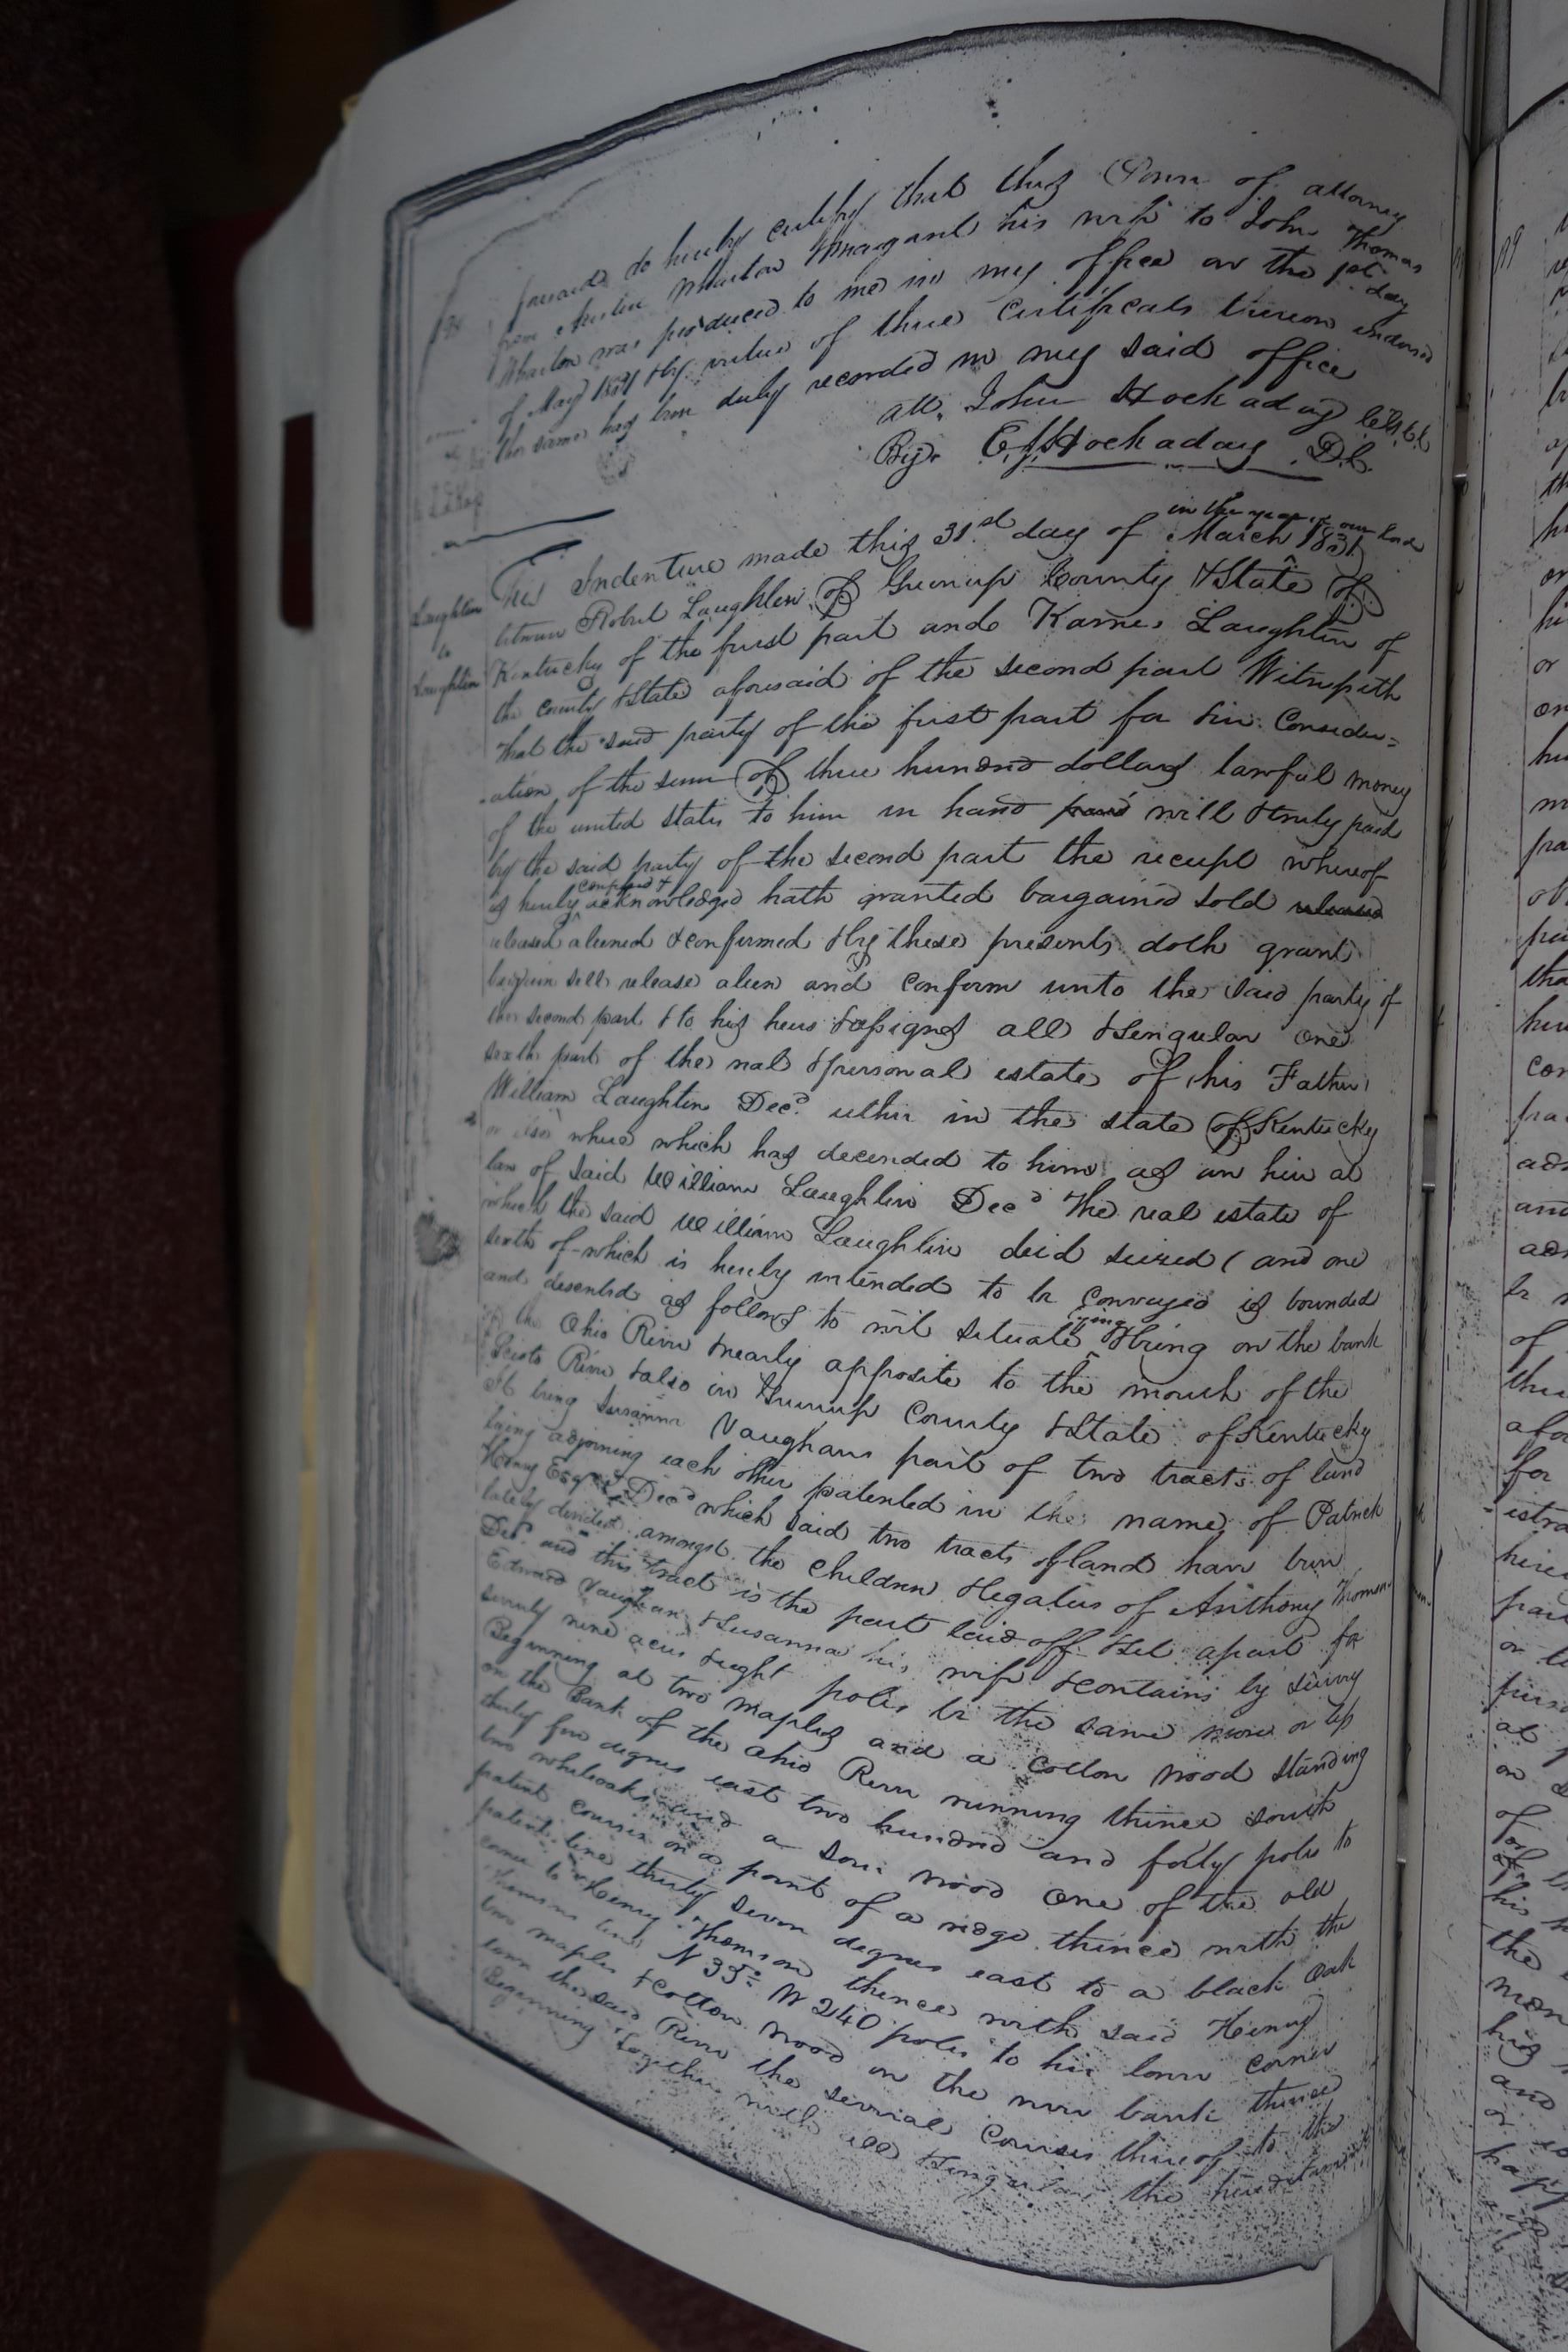 198
foresaid do hereby certify that this Power of attorney
from Austin Wharton & Margaret his wife to John Thomas
Wharton was produced to me in my office on the 1st day
of May 1831 & by virtue of three Certificats thereon endorsed
the same has been duly recorded in my said office
att. John Hockaday
By E. Hockaday D.C.
Laughlin
to
Laughlin
in the year of our Lord
This Indenture made this 31.st day of March 1831
between Robert Laughlin of Greenup County & State of
Kentucky of the first part and Laughlin of
the county & State aforesaid of the second part Witnesseth
that the said party of the first part for & in Consider=
-ation of the sum of three hundred dollars lawful money
of the united States to him in hand paid will & truly paid
by the said party of the second part the receipt whereof
is hereby acknowledged hath granted bargained sold released
released aliened & confirmed & by these presents doth grant
bargain sell release alien and confirm unto the said party of
the second part & to his heirs & assigns all & singular one
sixth part of the real & personal estate of his Father
William Laughlin Decd. either in the state of Kentucky
or else where which has decended to him as an heir at
law of said William Laughlin Decd The real estate of
which the said William Laughlin deid seized (and one
sixth of which is hereby intended to be conveyed is bounded
and described as follows to wit situate lying & being on the bank
of the Ohio River & nearly opposite to the mouth of the
Scioto River & also in Greenup County & State of Kentucky
It being Susanna Vaughans part of two tracts of land
lying adjoining each other patented in the name of Patrick
Henry Esqr Decd which said two tracts of land have been
lately divided amongst the children & legatees of Anthony Thomson
Decd. and this tract is the part laid off & set apart for
Edward Vaughan & Susanna his wife & contains by survey
seventy nine acres & eight poles be the same more or less
Beginning at two maples and a cotton wood standing
on the Bank of the Ohio River running thence south
thirty five degrees east two hundred and forty poles to
two whiteoaks and a sour wood one of the old
patent courses on a point of a ridge thence with the
patent line thirty seven degrees east to a black oak
corner to Henry Thomson thence with said Henry
Thomsons line N 35° W 240 poles to his lower corner
two maples & Cotton wood on the river bank thence
down the said River the several courses thereof to the
Beginning Together with all & singular the hereditaments